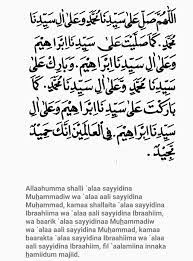 اَللّٰهُمَّ صَلِّ عَلَى سَيِّدِنَا مُحَمَّدٍ وَعَلَى اٰلِ سَيِّدِنَا
مُحَمَّدٍ. كَمَا صَلَّيْتَ عَلَى سَيِّدِنَا اِبْرَاهِيْمَ
وَعَلَى اٰلِ سَيِّدِنَا اِبْرَاهِيْمَ. وَبَارِكْ عَلَى
سَيِّدِنَا مُحَمَّدٍ وَعَلَى اٰلِ سَيِّدِنَا مُحَمَّدٍ. كَمَا
بَارَكْتَ عَلَى سَيِّدِنَا اِبْرَاهِيْمَ وَعَلَى اٰلِ
سَيِّدِنَا اِبْرَاهِيْمَ. فِى الْعَالَمِيْنَ اِنَّكَ حَمِيْدٌ
مَجِيْدٌ.
Allaahumma shalli `alaa sayyidina
Muḥammadiw wa `alaa aali sayyidina
Muḥammad, kamaa shallaita `alaa sayyidina
Ibraahiima wa `alaa aali sayyidina Ibraahiim,
wa baarik `alaa sayyidina Muḥammadiw
wa `alaa aali sayyidina Muḥammad, kamaa
baarakta `alaa sayyidina Ibraahiima wa `alaa
aali sayyidina Ibraahiim, fil `aalamiina innaka
ḥamiidum majiid.